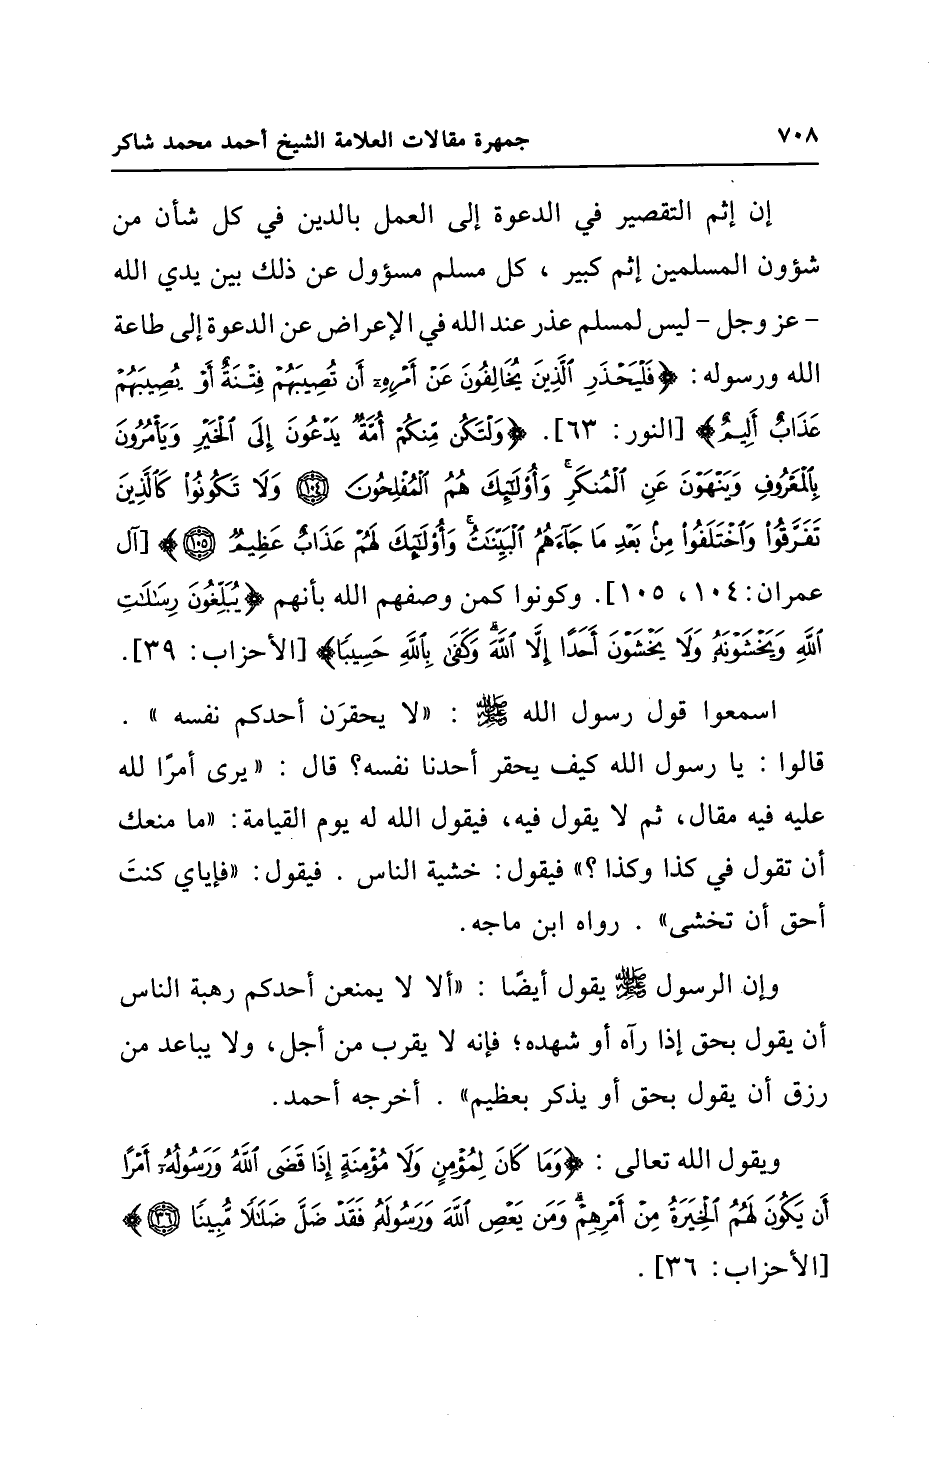 ٧٠٨ جمهرة مقالات العلامة الشيخ أحمد محمد شاكر
إن إثم التقصير في الدعوة إلى العمل بالدين في كل شأن من
شؤون المسلمين إثم كبير ، كل مسلم مسؤول عن ذلك بين يدي الله
- عز وجل - ليس لمسلم عذر عند الله في الإعراض عن الدعوة إلى طاعة
الله ورسوله: ﴿فَلْيَحْذَرِ ٱلَّذِينَ يُخَالِفُونَ عَنْ أَمْرِهِۦٓ أَن تُصِيبَهُمْ فِتْنَةٌ أَوْ يُصِيبَهُمْ
عَذَابٌ أَلِيمٌ﴾ [النور: ٦٣]. ﴿وَلْتَكُن مِّنكُمْ أُمَّةٌ يَدْعُونَ إِلَى ٱلْخَيْرِ وَيَأْمُرُونَ
بِٱلْمَعْرُوفِ وَيَنْهَوْنَ عَنِ ٱلْمُنكَرِ ۚ وَأُوْلَـٰٓئِكَ هُمُ ٱلْمُفْلِحُونَ ١٠٤ وَلَا تَكُونُواْ كَٱلَّذِينَ
تَفَرَّقُواْ وَٱخْتَلَفُواْ مِنۢ بَعْدِ مَا جَآءَهُمُ ٱلْبَيِّنَـٰتُ ۚ وَأُوْلَـٰٓئِكَ لَهُمْ عَذَابٌ عَظِيمٌ ١٠٥﴾ [آل
عمران: ١٠٤، ١٠٥]. وكونوا كمن وصفهم الله بأنهم ﴿يُبَلِّغُونَ رِسَـٰلَـٰتِ
ٱللَّهِ وَيَخْشَوْنَهُۥ وَلَا يَخْشَوْنَ أَحَدًا إِلَّا ٱللَّهَ ۗ وَكَفَىٰ بِٱللَّهِ حَسِيبًا﴾ [الأحزاب: ٣٩].
اسمعوا قول رسول الله ﷺ : «لا يحقرَن أحدكم نفسه » .
قالوا : يا رسول الله كيف يحقر أحدنا نفسه؟ قال : «يرى أمرًا لله
عليه فيه مقال، ثم لا يقول فيه، فيقول الله له يوم القيامة: «ما منعك
أن تقول في كذا وكذا ؟» فيقول: خشية الناس . فيقول: «فإياي كنتَ
أحق أن تخشى» . رواه ابن ماجه.
وإن الرسول ﷺ يقول أيضًا : «ألا لا يمنعن أحدكم رهبة الناس
أن يقول بحق إذا رآه أو شهده؛ فإنه لا يقرب من أجل، ولا يباعد من
رزق أن يقول بحق أو يذكر بعظيم» . أخرجه أحمد.
ويقول الله تعالى : ﴿وَمَا كَانَ لِمُؤْمِنٍ وَلَا مُؤْمِنَةٍ إِذَا قَضَى ٱللَّهُ وَرَسُولُهُۥٓ أَمْرًا
أَن يَكُونَ لَهُمُ ٱلْخِيَرَةُ مِنْ أَمْرِهِمْ ۗ وَمَن يَعْصِ ٱللَّهَ وَرَسُولَهُۥ فَقَدْ ضَلَّ ضَلَـٰلًا مُّبِينًا ٣٦﴾
[الأحزاب: ٣٦] .